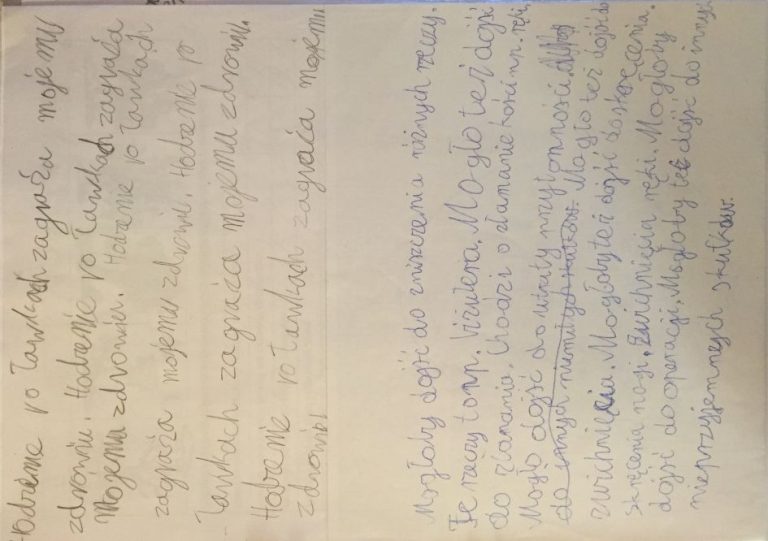 Hodzenie po ławkach zagraża mojemu
zdrowiu. Hodzenie po ławkach zagraża
Mojemu zdrowiu. Hodzenie po ławkach
zagraża mojemu zdrowiu. Hodzenie po
ławkach zagraża mojemu zdrowiu.
Hodzenie po ławkach zagraża mojemu
zdrowiu
Mogłoby dojść do zniszczenia różnych rzeczy.
Te rzeczy to np. biżuteria. Mogło też dojść
do złamania. Chodzi o złamanie kości np. ręki.
Mogło dojść do utraty przytomności
do innych niemiłych skutków. Mogło też dojść do
zwichnięcia. Mogłoby też dojść do skręcenia.
skręcenia nogi. Zwichnięcia ręki. Mogłoby
dojść do operacji. Mogłoby też dojść do innych
nieprzyjemnych skutków.